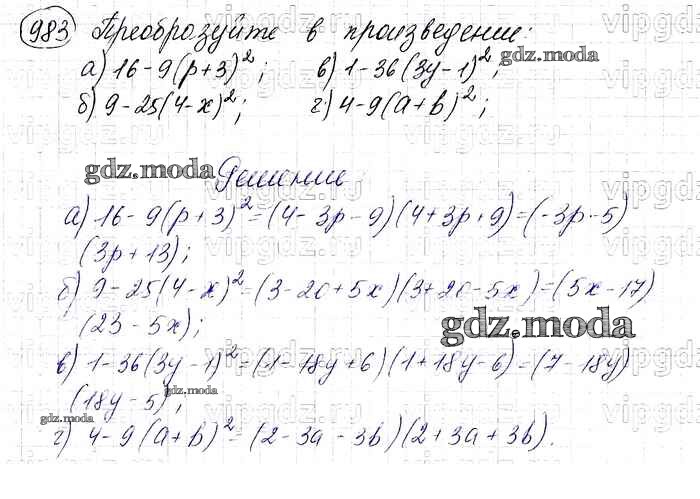 983 Преобразуйте в произведение:
а) 16-9(p+3)²; в) 1-36(3y-1)²;
gdz.moda
б) 9-25(4-x)²; г) 4-9(a+b)²;
gdz.moda Решение
а) 16-9(p+3)²=(4-3p-9)(4+3p+9)=(-3p-5)
(3p+13);
б) 9-25(4-x)²=(3-20+5x)(3+20-5x)=(5x-17)
(23-5x);
gdz.moda
в) 1-36(3y-1)²=(1-18y+6)(1+18y-6)=(7-18y)
(18y-5);
gdz.moda
gdz.moda
г) 4-9(a+b)²=(2-3a-3b)(2+3a+3b).